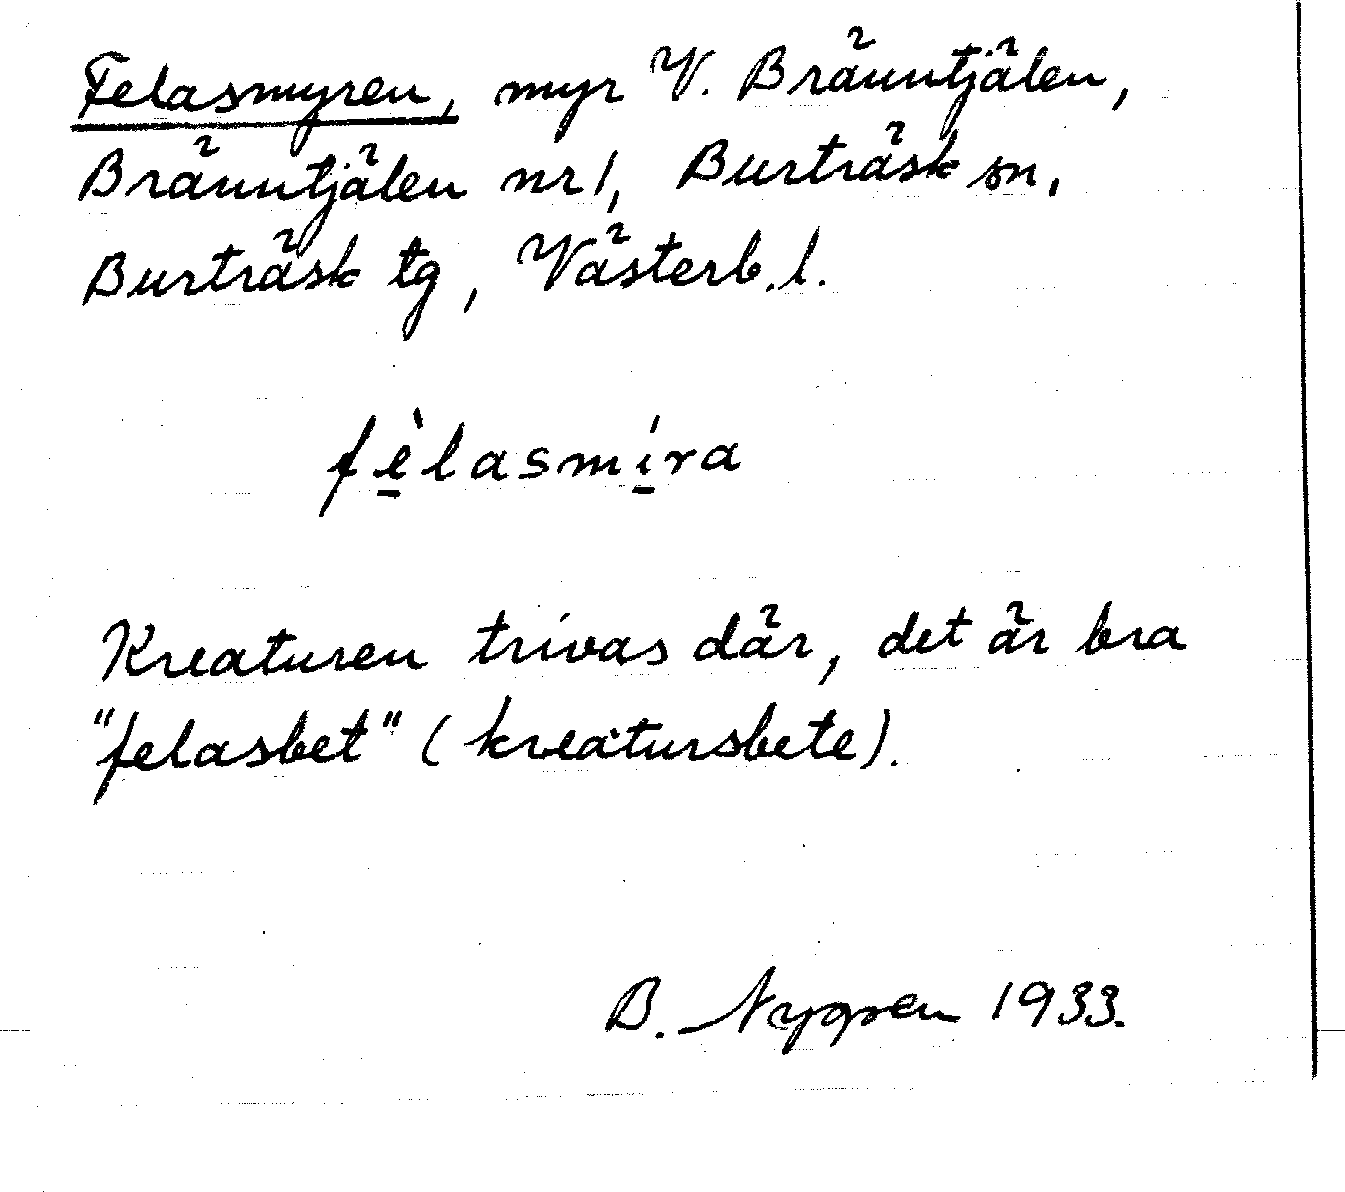 Felasmyren, myr V. Bränntjälen,
Bränntjälen nr 1, Burträsk sn,
Burträsk tg, Västerb.l.
fè̱lasmí̱ra
Kreaturen trivas där, det är bra
"felasbet" (kreatursbete).
B. Nygren 1933.